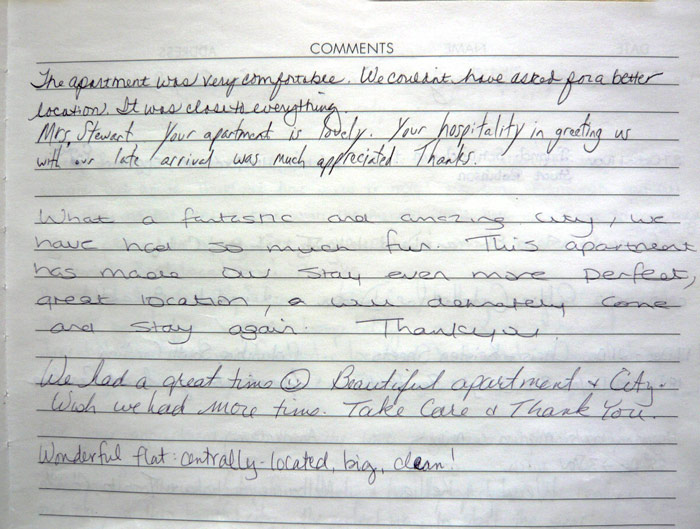 COMMENTS
The apartment was very comfortable. We couldn't have asked for a better
location. It was close to everything.
Mrs. Stewart Your apartment is lovely. Your hospitality in greeting us
with our late arrival was much appreciated. Thanks.
What a fantastic and amazing city, we
have had so much fun. This apartment
has made our stay even more perfect,
great location, & will definately come
and stay again. Thankyou.
We had a great time Beautiful apartment & City.
Wish we had more time. Take Care & Thank You.
Wonderful flat: centrally-located, big, clean!